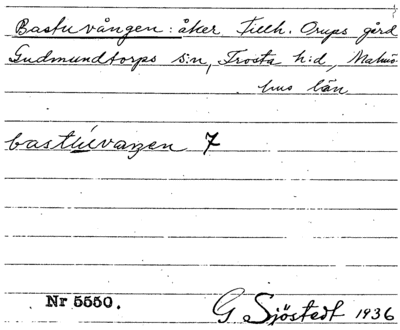 Bastuvången: åker tillh. Orups gård
Gudmundtorps s:n, Frosta h:d, Malmö-
hus län
bastúvaŋen 7
Nr 5550.
G Sjöstedt 1936